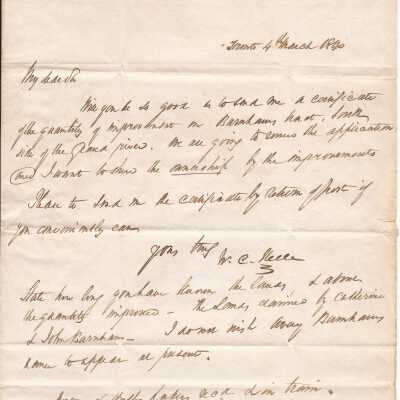 Toronto 4th March 1840
My dear Sir
Will you be so good as to send me a certificate
of the quantity of improvement on Burnhams South
side of the Grand river. We are going to the application
and I want to show the ownership by the improvements
Please to send me the certificate by return of post if
you conveniently can
yours truly
W. C.
State how long you have known the lands, & above
the quantity improved — the lands claimed by Catherine
& John Burnham — I do not wish Burnhams
name to appear at present.
& in train.